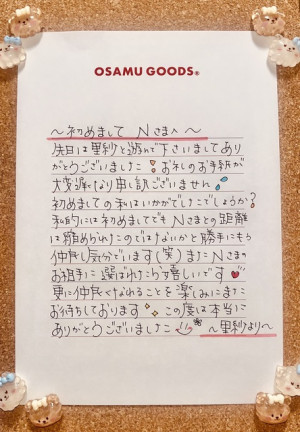 OSAMU GOODS®
～初めまして Nさまへ～
先日は里紗と遊んで下さいましてあり
がとうございました！お礼のお手紙が
大変遅くなり申し訳ございません
初めましての私はいかがでしたでしょうか？
私的には初めましてでもNさまとの距離
は縮められたのではないかと勝手にもう
仲良し気分でいます(笑)またNさまの
お相手に選ばれたら嬉しいです
更に仲良くなれることを楽しみにまた
お待ちしております この度は本当に
ありがとうございました
～里紗より～